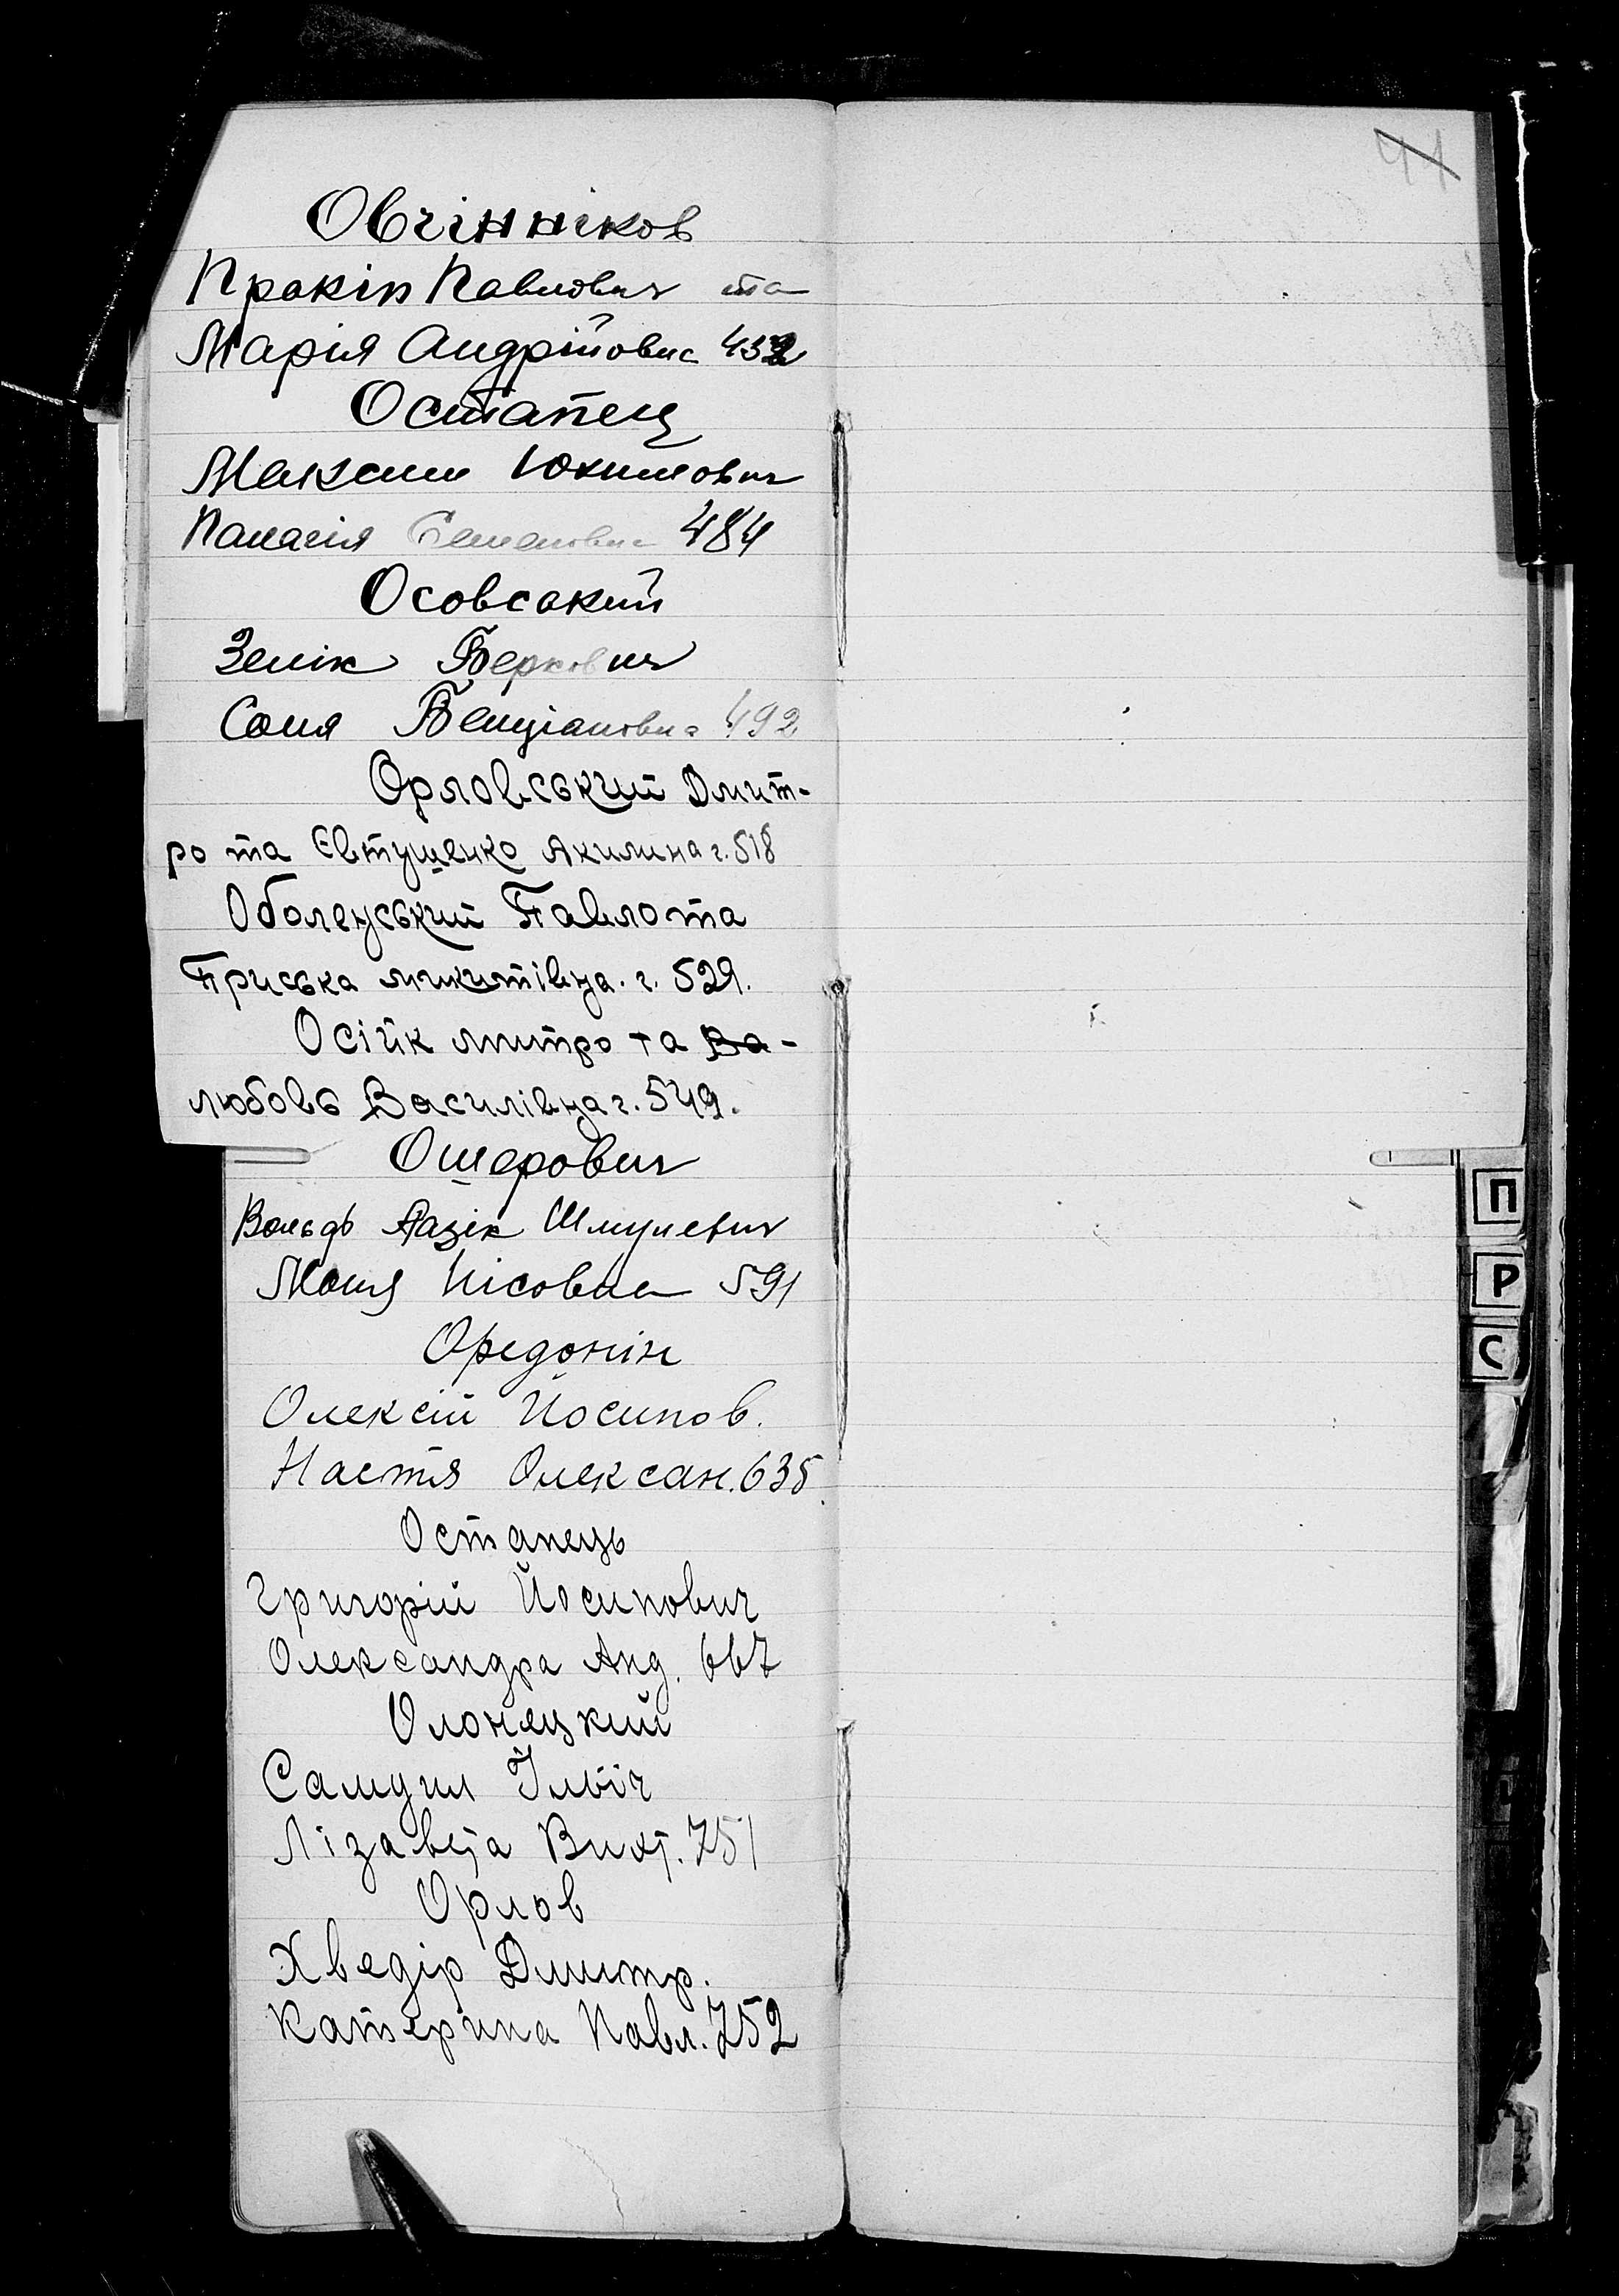 Овчінніков
Пракіп Павлович та
Марія Андрійовна 432
Остапец
Максим Юхимович
Палагія Семеновна 484
Осовський
Зелік Беркович
Соня Бенціановна 492
Орловський Дмит-
ро та Євтушенко Акилина г. 518
Оболенський Павло та
Приська Микитівна. г. 529.
Осійк Митро та Ва-
Любовь Василівна г. 549.
Ошерович
Вольдь Шмулевич
Маня Нісовна 591
Оредонін
Олексій Йосипов.
Настя Олексан. 635
Остапець
Григорій Йосипович
Олександра Анд. 667
Олонецкий
Самуил Ільїч
Лізавета Викт. 751
Орлов
Хведір Дмитр.
Катерина Павл. 752
41
П
Р
С